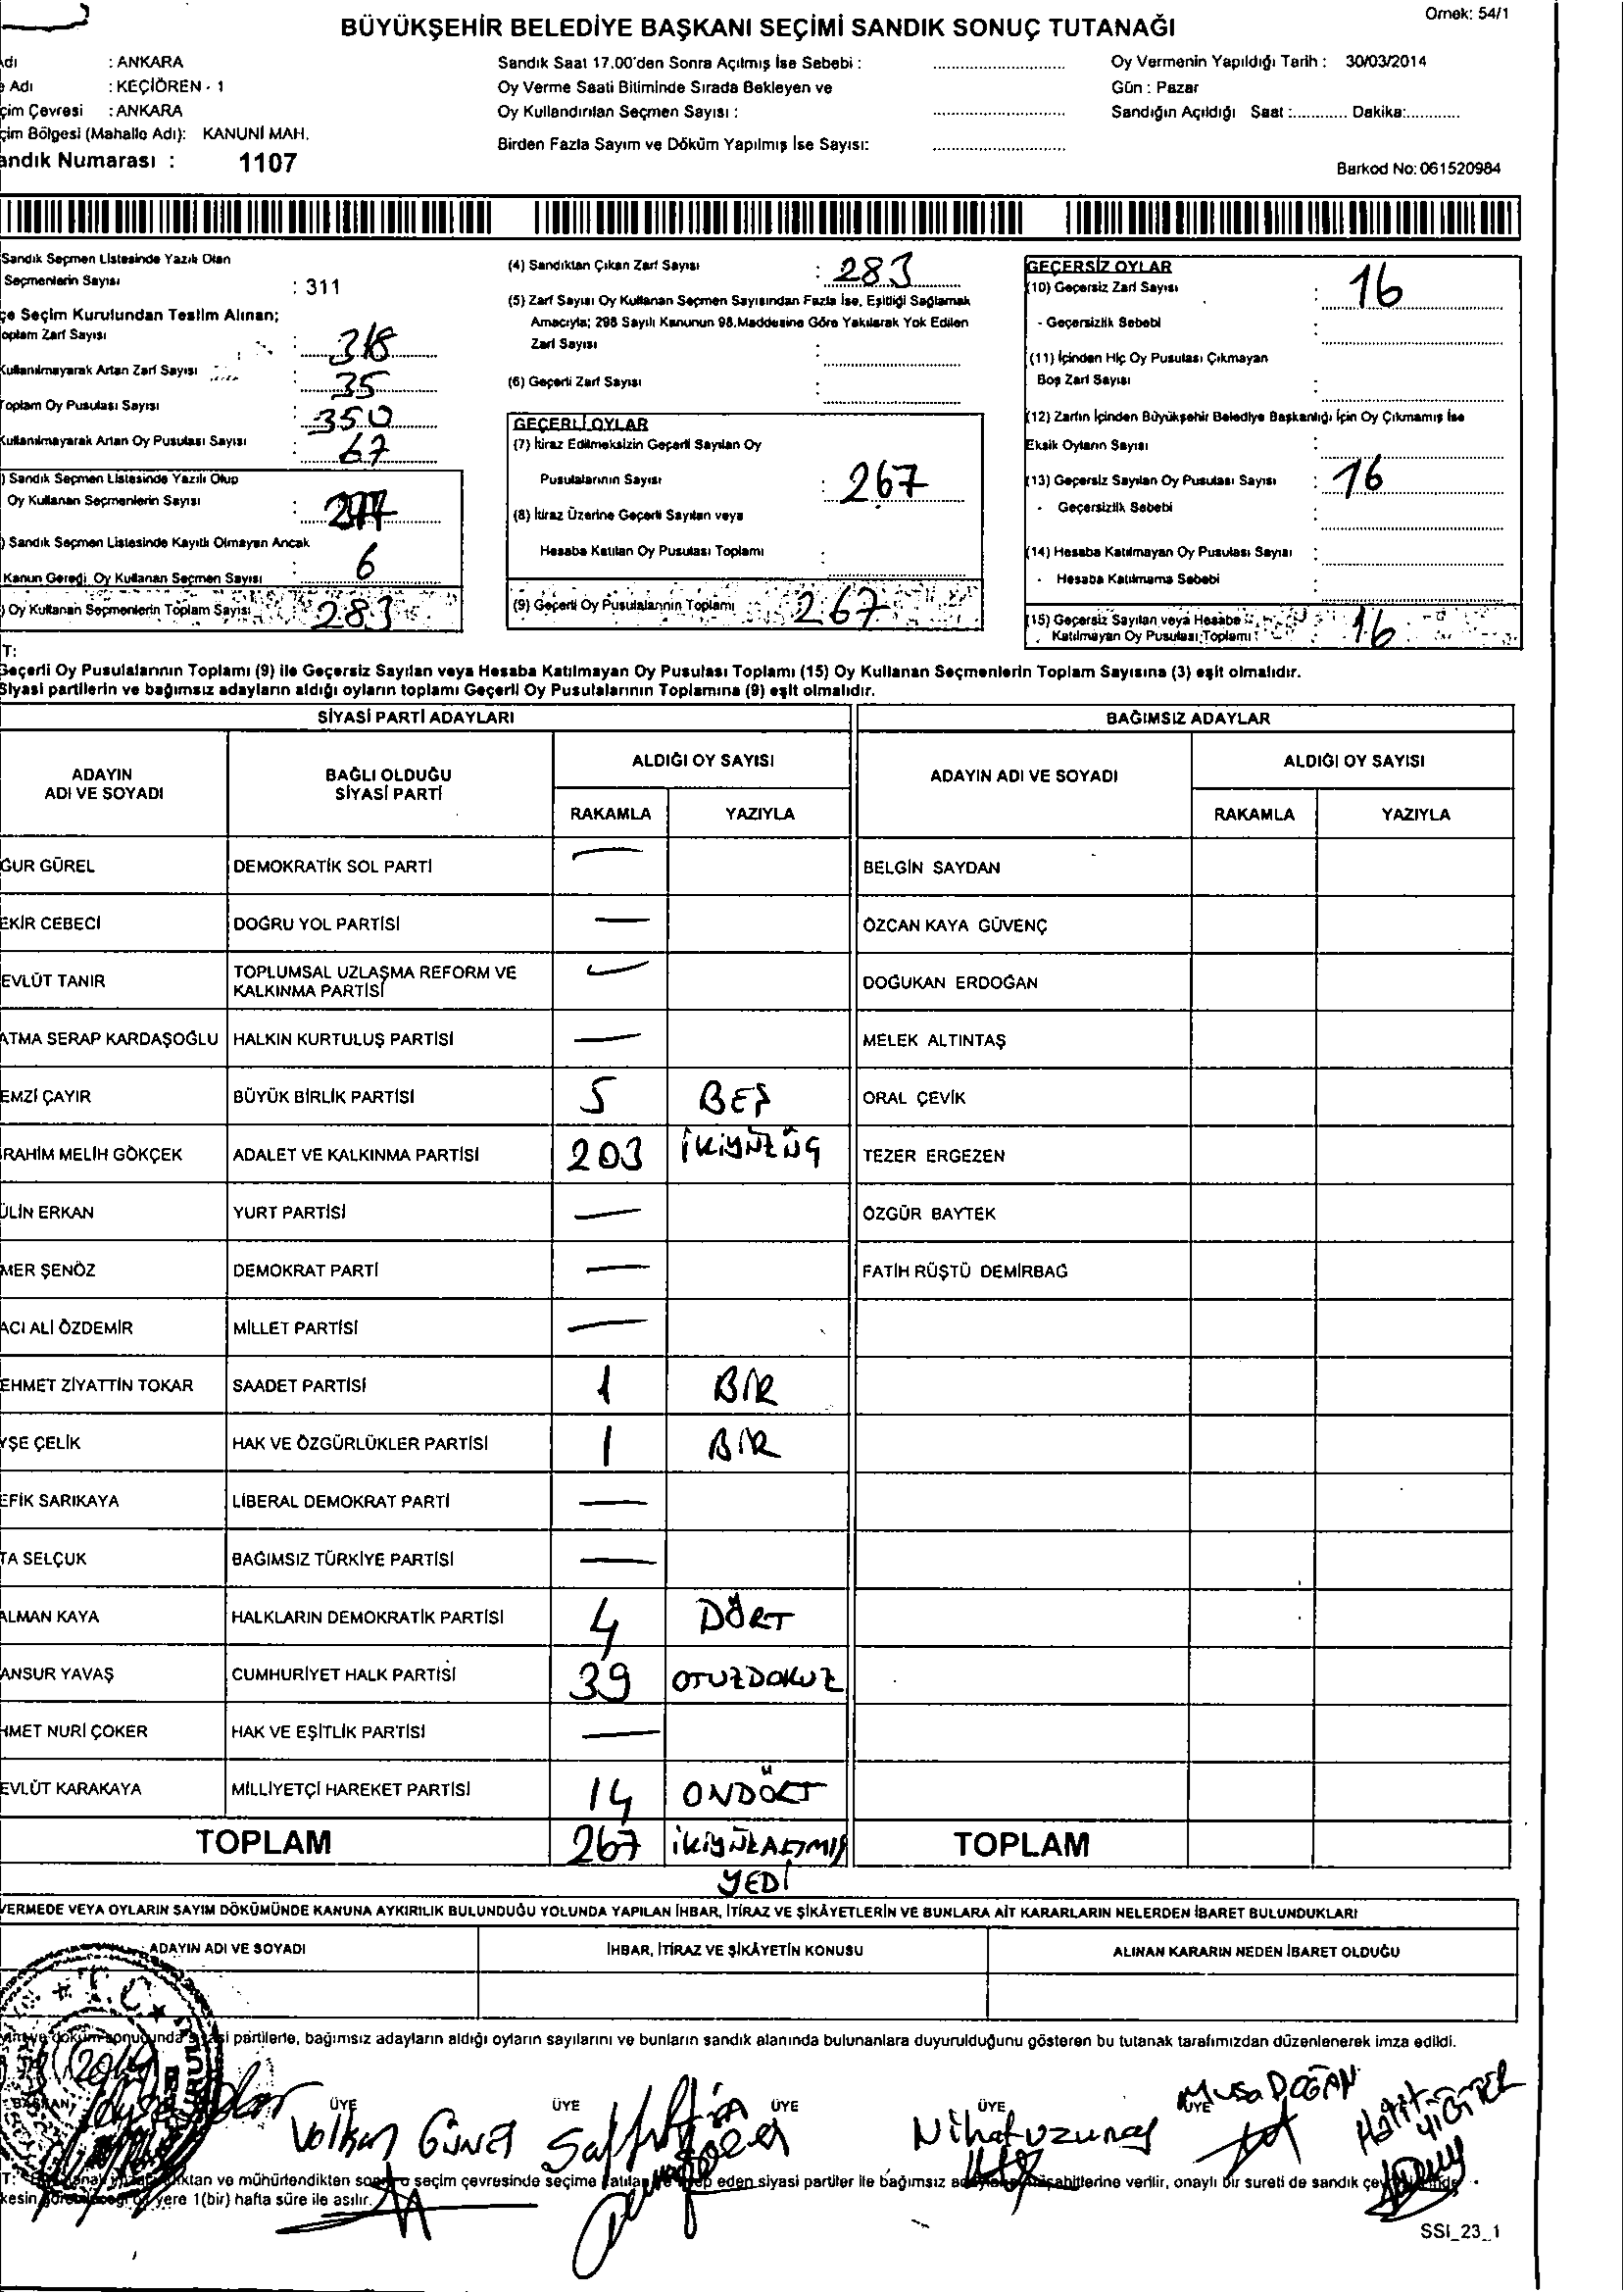 Örnek: 54/1
BÜYÜKŞEHİR BELEDİYE BAŞKANI SEÇİMİ SANDIK SONUÇ TUTANAĞI
dı : ANKARA
Adı : KEÇİÖREN - 1
çim Çevresi : ANKARA
çim Bölgesi (Mahalle Adı): KANUNİ MAH.
andık Numarası : 1107
Sandık Saat 17.00'den Sonra Açılmış İse Sebebi :
Oy Verme Saati Bitiminde Sırada Bekleyen ve
Oy Kullandırılan Seçmen Sayısı :
Birden Fazla Sayım ve Döküm Yapılmış İse Sayısı:
Oy Vermenin Yapıldığı Tarih : 30/03/2014
Gün : Pazar
Sandığın Açıldığı Saat :............ Dakika:............
Barkod No: 061520984
Sandık Seçmen Listesinde Yazılı Olan
Seçmenlerin Sayısı : 311
çe Seçim Kurulundan Teslim Alınan;
oplam Zarf Sayısı : 318
Kullanılmayarak Artan Zarf Sayısı : 35
Toplam Oy Pusulası Sayısı : 350
Kullanılmayarak Artan Oy Pusulası Sayısı : 67
) Sandık Seçmen Listesinde Yazılı Olup
Oy Kullanan Seçmenlerin Sayısı : 277
) Sandık Seçmen Listesinde Kayıtlı Olmayan Ancak
Kanun Gereği Oy Kullanan Seçmen Sayısı : 6
) Oy Kullanan Seçmenlerin Toplam Sayısı 283
(4) Sandıktan Çıkan Zarf Sayısı : 283
(5) Zarf Sayısı Oy Kullanan Seçmen Sayısından Fazla İse, Eşitliği Sağlamak
Amacıyla; 298 Sayılı Kanunun 98.Maddesine Göre Yakılarak Yok Edilen
Zarf Sayısı :
(6) Geçerli Zarf Sayısı :
GEÇERLİ OYLAR
(7) İtiraz Edilmeksizin Geçerli Sayılan Oy
Pusulalarının Sayısı : 267
(8) İtiraz Üzerine Geçerli Sayılan veya
Hesaba Katılan Oy Pusulası Toplamı :
(9) Geçerli Oy Pusulalarının Toplamı 267
GEÇERSİZ OYLAR
(10) Geçersiz Zarf Sayısı : 16
- Geçersizlik Sebebi :
(11) İçinden Hiç Oy Pusulası Çıkmayan
Boş Zarf Sayısı :
(12) Zarfın İçinden Büyükşehir Belediye Başkanlığı İçin Oy Çıkmamış İse
Eksik Oyların Sayısı :
(13) Geçersiz Sayılan Oy Pusulası Sayısı : 16
- Geçersizlik Sebebi
(14) Hesaba Katılmayan Oy Pusulası Sayısı :
- Hesaba Katılmama Sebebi :
(15) Geçersiz Sayılan veya Hesaba
Katılmayan Oy Pusulası Toplamı : 16
T:
Geçerli Oy Pusulalarının Toplamı (9) ile Geçersiz Sayılan veya Hesaba Katılmayan Oy Pusulası Toplamı (15) Oy Kullanan Seçmenlerin Toplam Sayısına (3) eşit olmalıdır.
Siyasi partilerin ve bağımsız adayların aldığı oyların toplamı Geçerli Oy Pusulalarının Toplamına (9) eşit olmalıdır.
SİYASİ PARTİ ADAYLARI BAĞIMSIZ ADAYLAR
ADAYIN ADI VE SOYADI
BAĞLI OLDUĞU SİYASİ PARTİ
ALDIĞI OY SAYISI
RAKAMLA YAZIYLA
ADAYIN ADI VE SOYADI
ALDIĞI OY SAYISI
RAKAMLA YAZIYLA
ĞUR GÜREL DEMOKRATİK SOL PARTİ — BELGİN SAYDAN
EKİR CEBECİ DOĞRU YOL PARTİSİ — ÖZCAN KAYA GÜVENÇ
EVLÜT TANIR TOPLUMSAL UZLAŞMA REFORM VE KALKINMA PARTİSİ — DOĞUKAN ERDOĞAN
ATMA SERAP KARDAŞOĞLU HALKIN KURTULUŞ PARTİSİ — MELEK ALTINTAŞ
EMZİ ÇAYIR BÜYÜK BİRLİK PARTİSİ 5 BEŞ ORAL ÇEVİK
RAHİM MELİH GÖKÇEK ADALET VE KALKINMA PARTİSİ 203 İKİYÜZÜÇ TEZER ERGEZEN
ÜLİN ERKAN YURT PARTİSİ — ÖZGÜR BAYTEK
MER ŞENÖZ DEMOKRAT PARTİ — FATİH RÜŞTÜ DEMİRBAĞ
ACI ALİ ÖZDEMİR MİLLET PARTİSİ —
EHMET ZİYATTİN TOKAR SAADET PARTİSİ 1 BİR
YŞE ÇELİK HAK VE ÖZGÜRLÜKLER PARTİSİ 1 BİR
EFİK SARIKAYA LİBERAL DEMOKRAT PARTİ —
TA SELÇUK BAĞIMSIZ TÜRKİYE PARTİSİ —
ALMAN KAYA HALKLARIN DEMOKRATİK PARTİSİ 4 DÖRT
ANSUR YAVAŞ CUMHURİYET HALK PARTİSİ 39 OTUZDOKUZ
HMET NURİ ÇOKER HAK VE EŞİTLİK PARTİSİ —
EVLÜT KARAKAYA MİLLİYETÇİ HAREKET PARTİSİ 14 ONDÖRT
TOPLAM 267 İKİYÜZALTMIŞ YEDİ TOPLAM
VERMEDE VEYA OYLARIN SAYIM DÖKÜMÜNDE KANUNA AYKIRILIK BULUNDUĞU YOLUNDA YAPILAN İHBAR, İTİRAZ VE ŞİKÂYETLERİN VE BUNLARA AİT KARARLARIN NELERDEN İBARET BULUNDUKLARI
ADAYIN ADI VE SOYADI İHBAR, İTİRAZ VE ŞİKÂYETİN KONUSU ALINAN KARARIN NEDEN İBARET OLDUĞU
T.C.
partilerle, bağımsız adayların aldığı oyların sayılarını ve bunların sandık alanında bulunanlara duyurulduğunu gösteren bu tutanak tarafımızdan düzenlenerek imza edildi.
BAŞKAN ÜYE ÜYE ÜYE ÜYE ÜYE
Volkan Güner Nihat Uzunay Musa DOĞAN
ve mühürlendikten seçim çevresinde seçime eden siyasi partiler ile bağımsız verilir, onaylı bir sureti de sandık
yere 1(bir) hafta süre ile asılır.
SSI_23_1